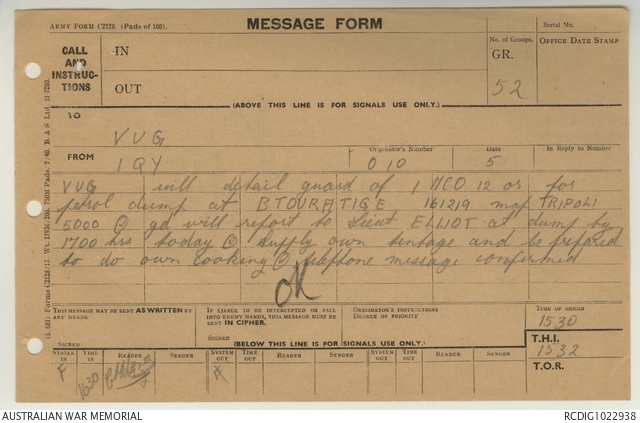 ARMY FORM C2128 (Pads of 100).
MESSAGE FORM
Serial No.
CALL
AND
INSTRUC-
TIONS
IN
OUT
No. of Groups.
GR.
52
OFFICE DATE STAMP
(ABOVE THIS LINE IS FOR SIGNALS USE ONLY.)
TO
VUG
FROM
1QY
Originator's Number
010
Date
5
In Reply to Number
VUG will detail guard of 1 NCO 12 ors for
petrol dump at BTOURATIGE 161219 map TRIPOLI
5000 @ gd will report to Lieut ELLIOT at dump by
1700 hrs today @ supply own tentage and be prepared
to do own cooking @ telephone message confirmed
OK
THIS MESSAGE MAY BE SENT AS WRITTEN BY
ANY MEANS.
SIGNED
IF LIABLE TO BE INTERCEPTED OR FALL
INTO ENEMY HANDS, THIS MESSAGE MUST BE
SENT IN CIPHER.
SIGNED
ORIGINATOR'S INSTRUCTIONS
DEGREE OF PRIORITY
TIME OF ORIGIN
1530
(BELOW THIS LINE IS FOR SIGNALS USE ONLY.)
T.H.I.
1532
T.O.R.
SYSTEM IN
TIME IN
READER
SENDER
SYSTEM OUT
TIME OUT
READER
SENDER
SYSTEM OUT
TIME OUT
READER
SENDER
F
1630
AUSTRALIAN WAR MEMORIAL
RCDIG1022938